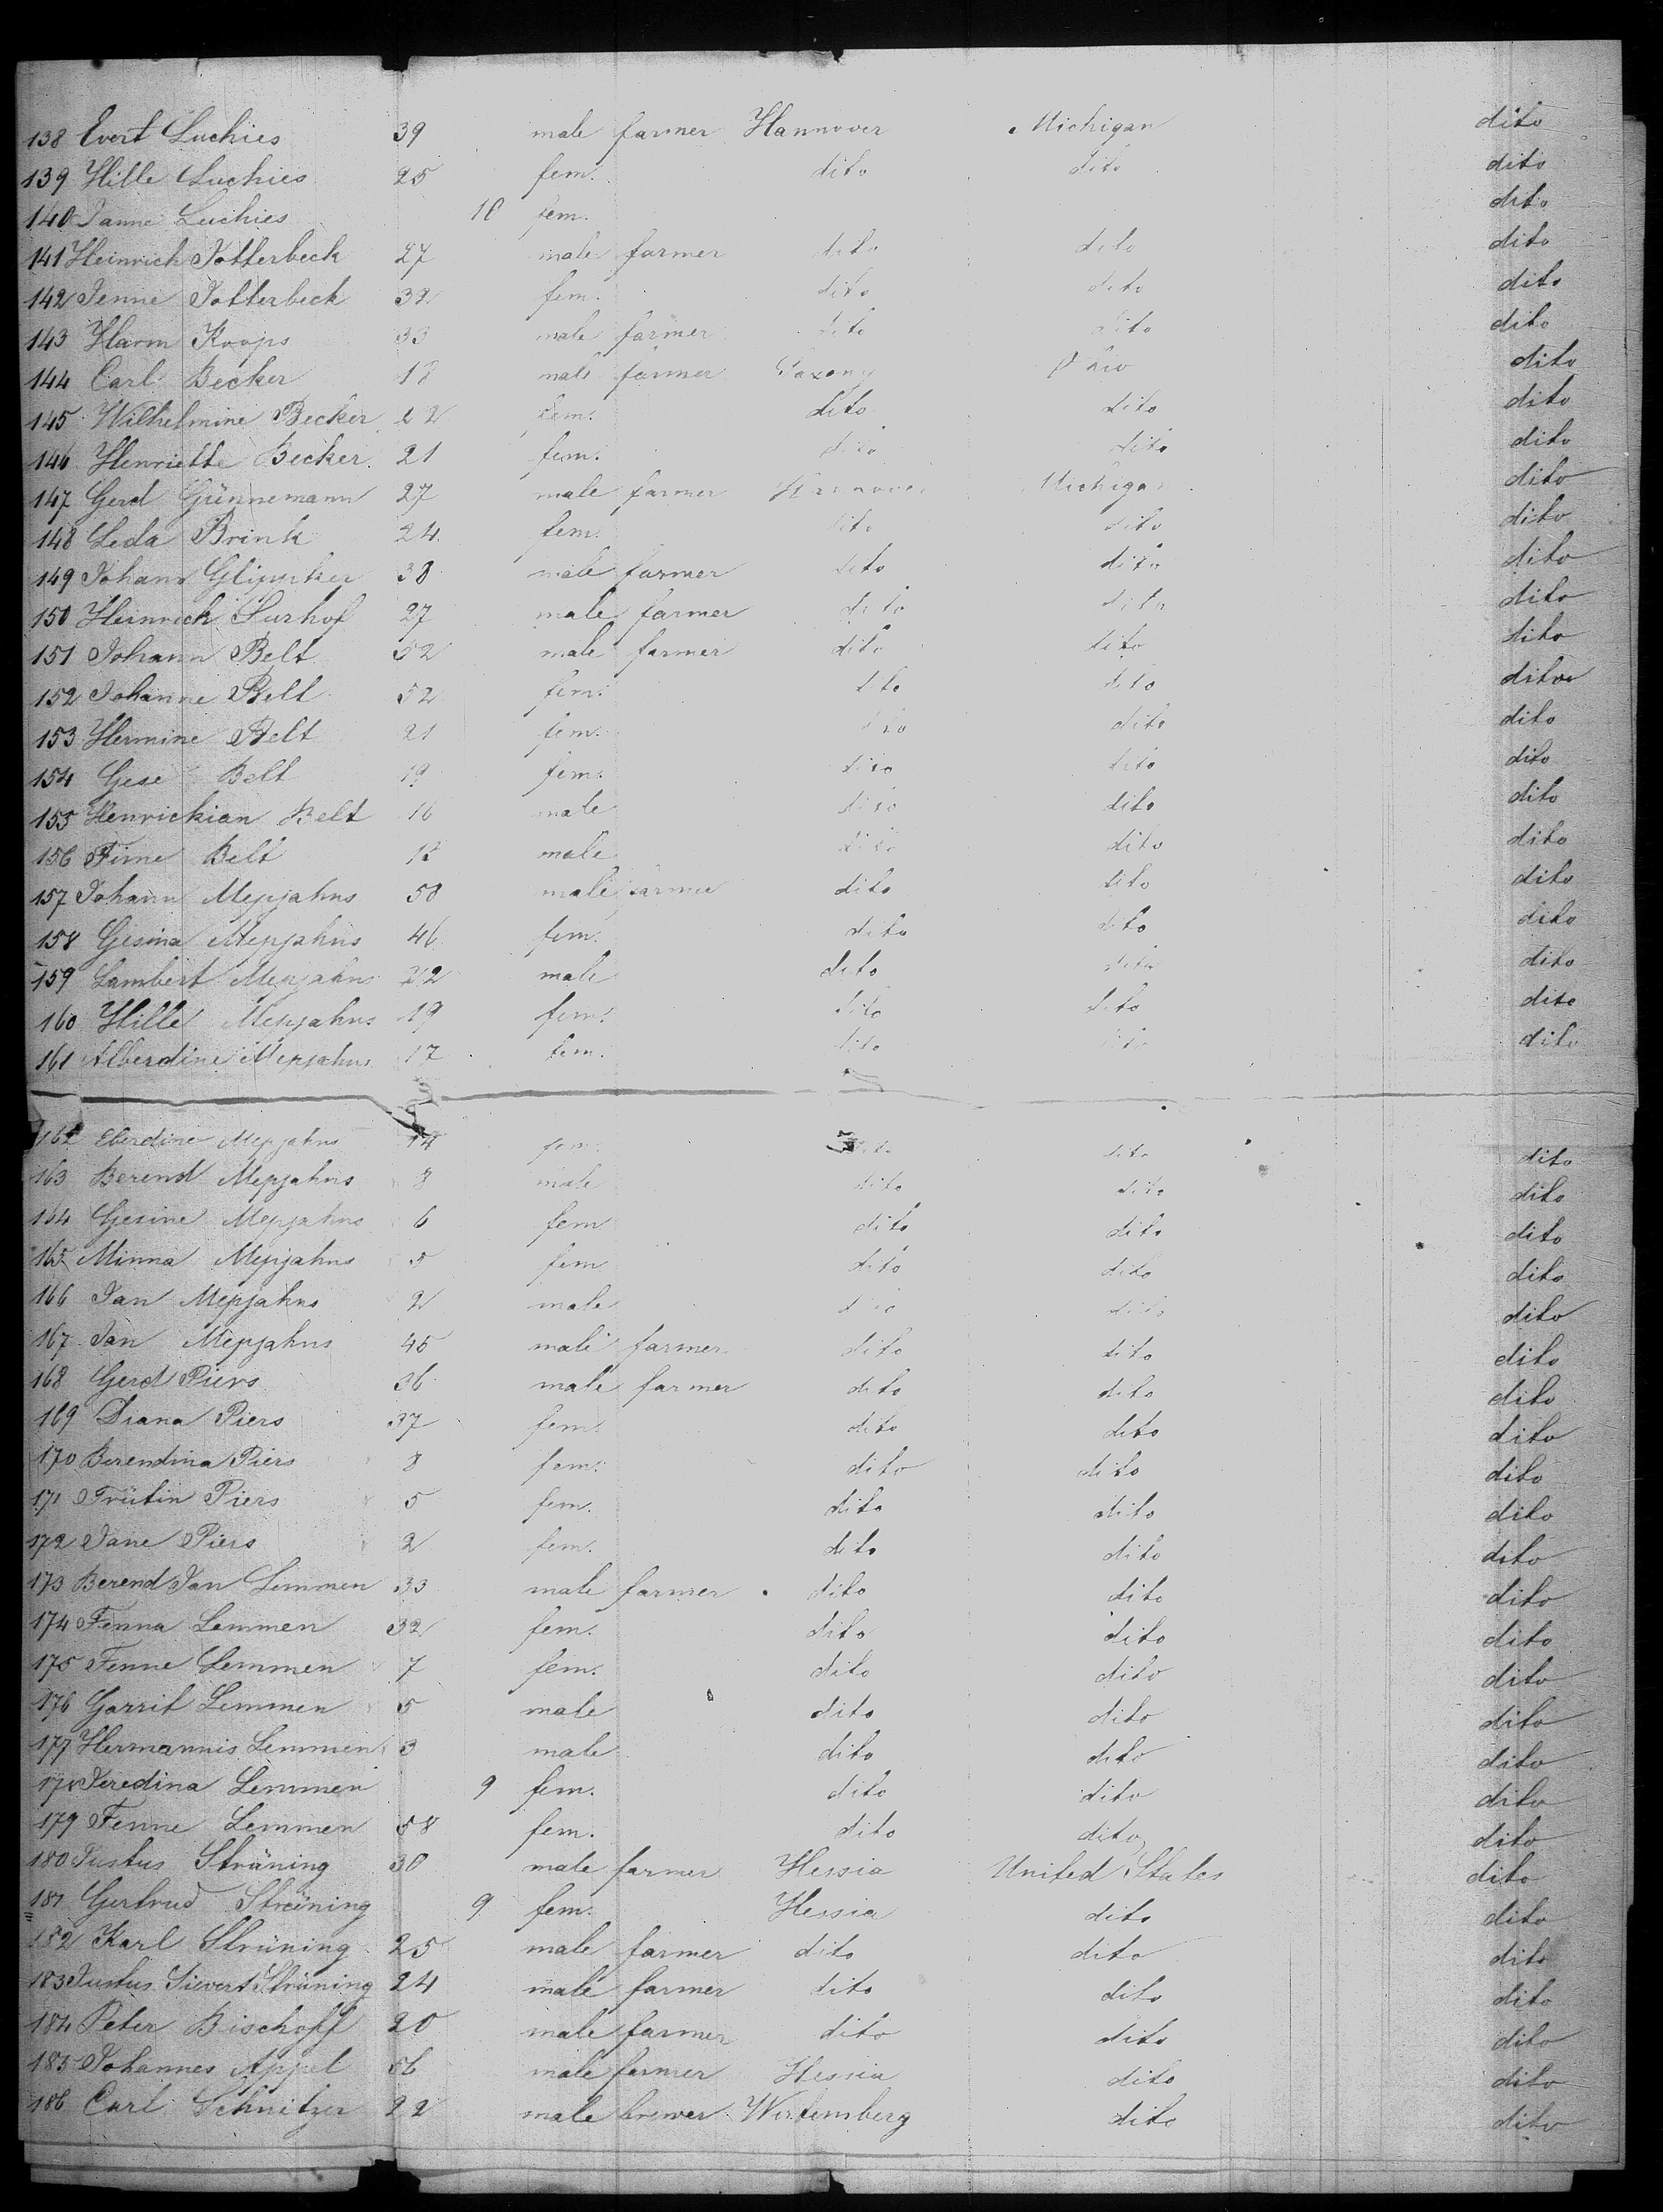 138 Evert Luchies 39 male farmer Hannover Michigan dito
139 Hille Luchies 25 fem. dito dito dito
140 Janne Luchies 10 fem. dito
141 Heinrich Potterbeck 27 male farmer dito dito dito
142 Jenne Potterbeck 32 fem. dito dito dito
143 Harm Koops 33 male farmer dito dito dito
144 Carl Becker 18 male farmer Saxony Ohio dito
145 Wilhelmine Becker 22 fem. dito dito dito
146 Henriette Becker 21 fem. dito dito dito
147 Gerd Günnemann 27 male farmer Hannover Michigan dito
148 Leda Brink 24 fem. dito dito dito
149 Johann Glipprker 38 male farmer dito dito dito
150 Heinrich Surhof 27 male farmer dito dito dito
151 Johann Belt 52 male farmer dito dito dito
152 Johanne Belt 52 fem. dito dito dito
153 Hermine Belt 21 fem. dito dito dito
154 Gese Belt 19 fem. dito dito dito
155 Henrickian Belt 16 male dito dito dito
156 Fime Belt male dito dito dito
157 Johann Mepjahns 50 male farmer dito dito dito
158 Gesina Mepjahns 46 fem. dito dito dito
159 Lambert Mepjahns 22 male dito dito dito
160 Hille Mepjahns 19 fem. dito dito dito
161 Alberdine Mepjahns 17 fem. dito dito dito
162 Eberdine Mepjahns 14 fem. dito dito dito
163 Berend Mepjahns 8 male dito dito dito
164 Gesine Mepjahns 6 fem dito dito dito
165 Minna Mepjahns 5 fem dito dito dito
166 Jan Mepjahns 2 male dito dito dito
167 Jan Mepjahns 45 male farmer dito dito dito
168 Gerd Piers 36 male farmer dito dito dito
169 Diana Piers 37 fem. dito dito dito
170 Berendina Piers 8 fem. dito dito dito
171 Trütin Piers 5 fem. dito dito dito
172 Jane Piers 2 fem. dito dito dito
173 Berend Jan Lemmen 33 male farmer dito dito dito
174 Fenna Lemmen 32 fem. dito dito dito
175 Fenne Lemmen 7 fem. dito dito dito
176 Garrit Lemmen 5 male dito dito dito
177 Hermannis Lemmen 3 male dito dito dito
178 Jeredina Lemmen 9 fem. dito dito dito
179 Fenne Lemmen 58 fem. dito dito dito
180 Justus Sträning 30 male farmer Hessia United States dito
181 Gertrud Sträning 9 fem. Hessia dito dito
182 Karl Strüning 25 male farmer dito dito dito
183 Justus Sievert Strüning 24 male farmer dito dito dito
184 Peter Bischoff 20 male farmer dito dito dito
185 Johannes Appel 56 male farmer Hessia dito dito
186 Carl Schnitzer 22 male brewer Wirtemberg dito dito